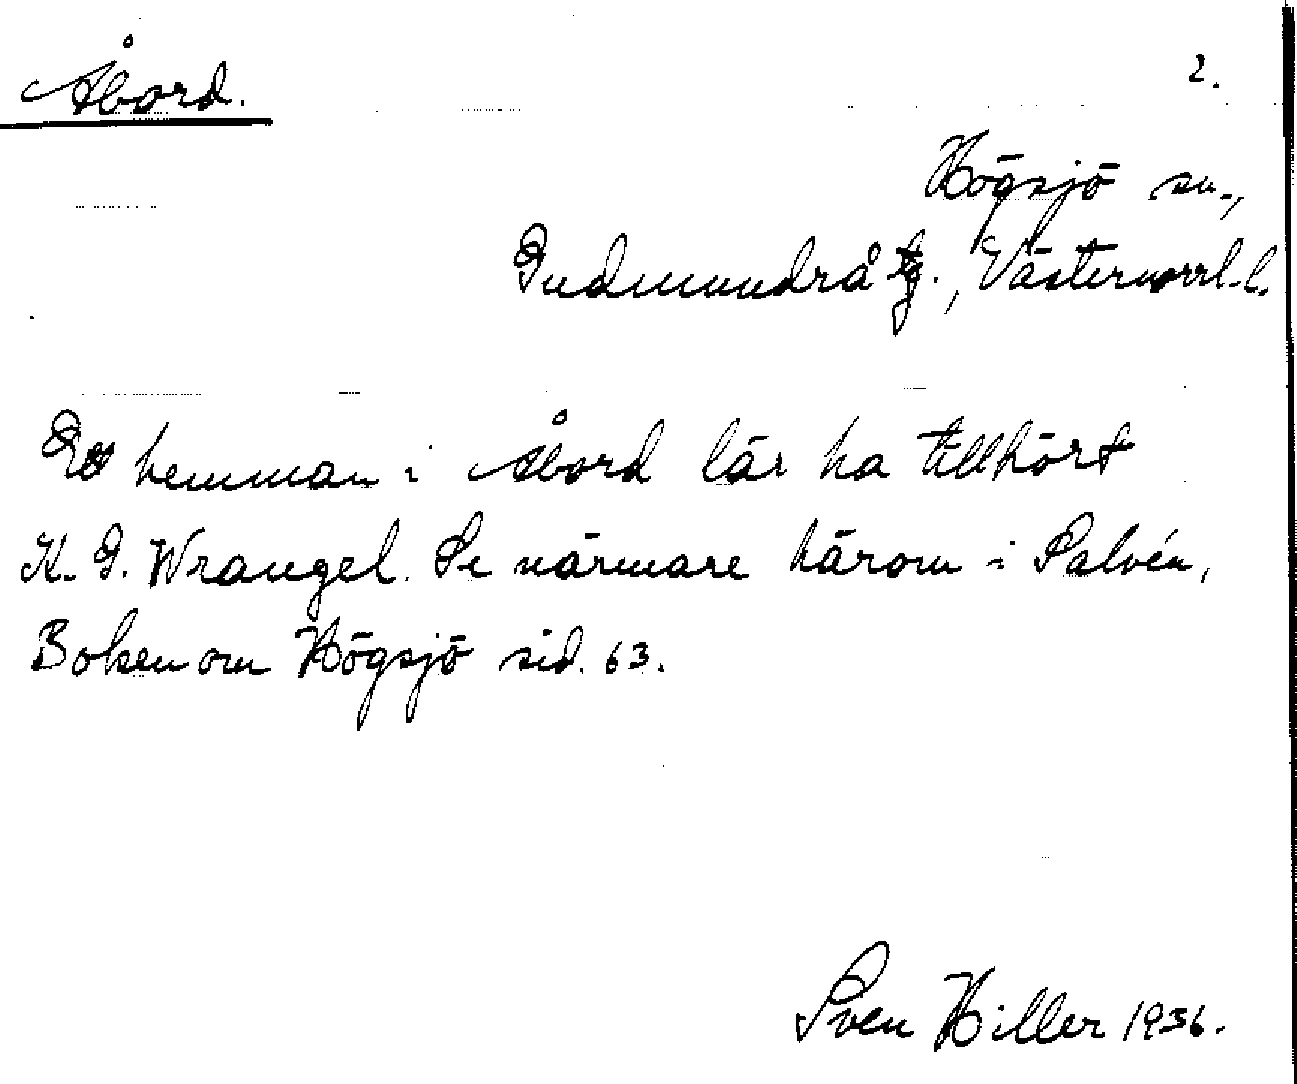 Åbord.
2.
Högsjö sn.,
Gudmundrå tg., Västernorrl. l.
Ett hemman i Åbord lär ha tillhört
K. G. Wrangel. Se närmare härom i Salvén,
Boken om Högsjö sid. 63.
Sven Hiller 1936.